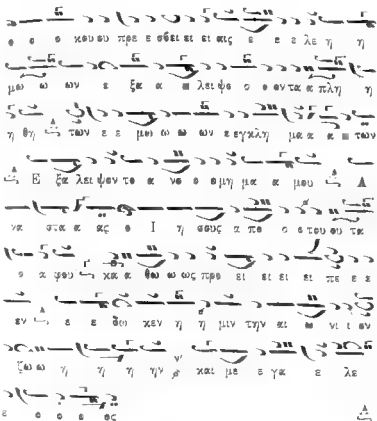 ο ο ο κου ου πρε ε σβει ει ει αις ε ε ε λε η η
μω ω ων ε ξα α α λει ψο ο ο ον τα α πλη η
η θη των ε ε μω ω ω ων ε εγκλη μα α α α των
Ε ξα λει ψον το α νο ο ο μη μα α μου Α
να στα α ας ο Ι η σους α πο ο ο του ου τα
ο α φου κα α θω ω ως προ ει ει ει ει πε ε ε
εν ε ε δω κεν η η μιν την αι ω νι ι ον
ζω ω η η η ην και με ε γα ε λε
ε ο ο ο ος